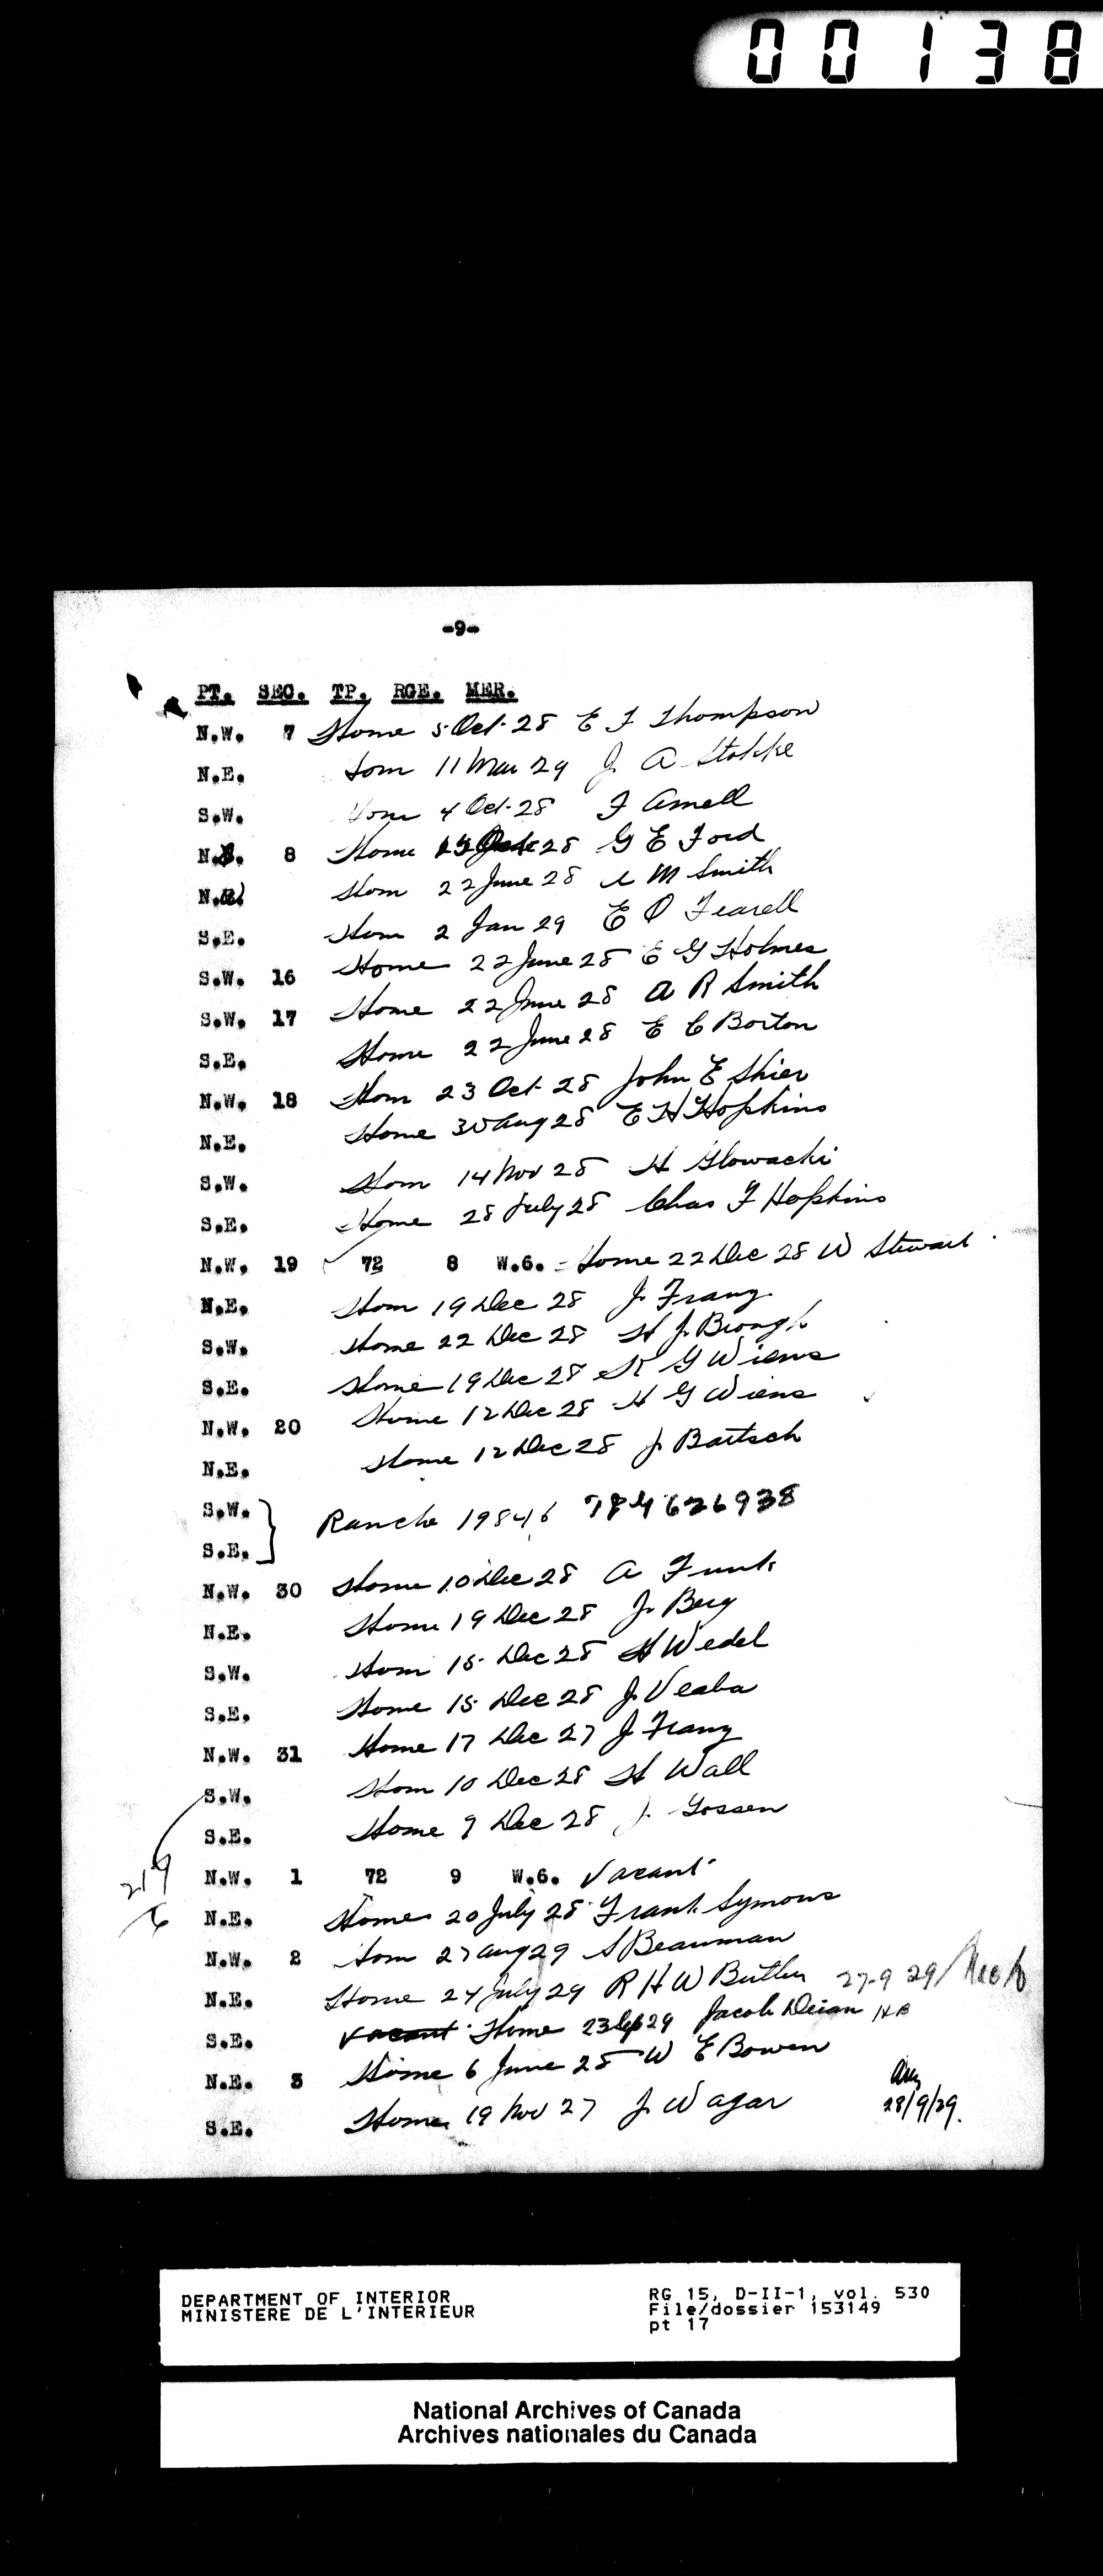 00138
-9-
PT. SEC. TP. RGE. MER.
N.W. 7 Home 5 Oct. 28 E F Thompson
N.E. Hom 11 Mar 29 J. A Stokke
S.W. Hom 4 Oct. 28 F Arnell
N. 8 Home 28 G E Ford
N. Hom 22 June 28 M Smith
S.E. Hom 2 Jan 29 E O Fearell
S.W. 16 Home 22 June 28 E G Holmes
S.W. 17 Home 22 June 28 A R Smith
S.E. Home 22 June 28 E C Borton
N.W. 18 Hom 23 Oct. 28 John E Shier
N.E. Home 30 Aug 28 E H Hopkins
S.W. Hom 14 Nov 28 H Glowacki
S.E. Home 28 July 28 Chas F Hopkins
N.W. 19 72 8 W.6. Home 22 Dec 28 W Stewart
N.E. Hom 19 Dec 28 J. Franz
S.W. Home 22 Dec 28 H J. Brough
S.E. Home 19 Dec 28 K G Wiens
N.W. 20 Home 12 Dec 28 H G Wiens
N.E. Home 12 Dec 28 J. Bartsch
S.W. }
Ranche 19846 784626938
S.E. }
N.W. 30 Home 10 Dec 28 A Funk
N.E. Home 19 Dec 28 J. Berg
S.W. Hom 15 Dec 28 H Wedel
S.E. Home 15 Dec 28 J.
N.W. 31 Home 17 Dec 27 J Franz
S.W. Hom 10 Dec 28 H Wall
S.E. Home 9 Dec 28 J. Gossen
N.W. 1 72 9 W.6. Vacant
N.E. Home 20 July 28 Frank Symons
N.W. 2 Hom 27 Aug 29 S Beauman
N.E. Home 24 July 29 R H W Butler 27-9 29/
S.E. Vacant Home 23 Sep 29 Jacob HB
N.E. 3 Home 6 June 28 W E Bowen
S.E. Home 19 Nov 27 J. Wagar 28/9/29.
DEPARTMENT OF INTERIOR
MINISTERE DE L'INTERIEUR
RG 15, D-II-1, vol. 530
File/dossier 153149
pt 17
National Archives of Canada
Archives nationales du Canada